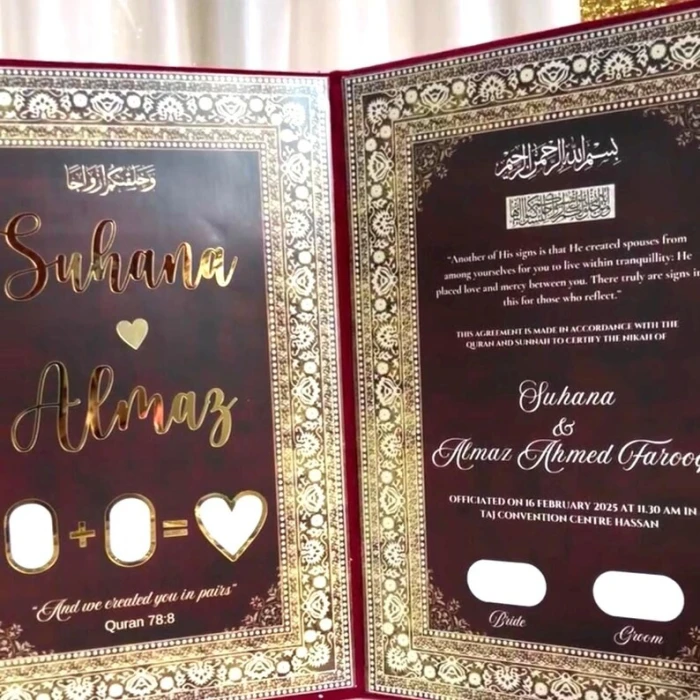 وَخَلَقْنَٰكُمْ أَزْوَٰجًا
Suhana
Almaz
+ =
“And we created you in pairs”
Quran 78:8
بِسْمِ اللهِ الرَّحْمٰنِ الرَّحِيْمِ
“Another of His signs is that He created spouses from
among yourselves for you to live within tranquillity: He
placed love and mercy between you. There truly are signs i
this for those who reflect.”
THIS AGREEMENT IS MADE IN ACCORDANCE WITH THE
QURAN AND SUNNAH TO CERTIFY THE NIKAH OF
Suhana
&
Almaz Ahmed Faroo
OFFICIATED ON 16 FEBRUARY 2025 AT 11.30 AM IN
TAJ CONVENTION CENTRE HASSAN
Bride
Groom